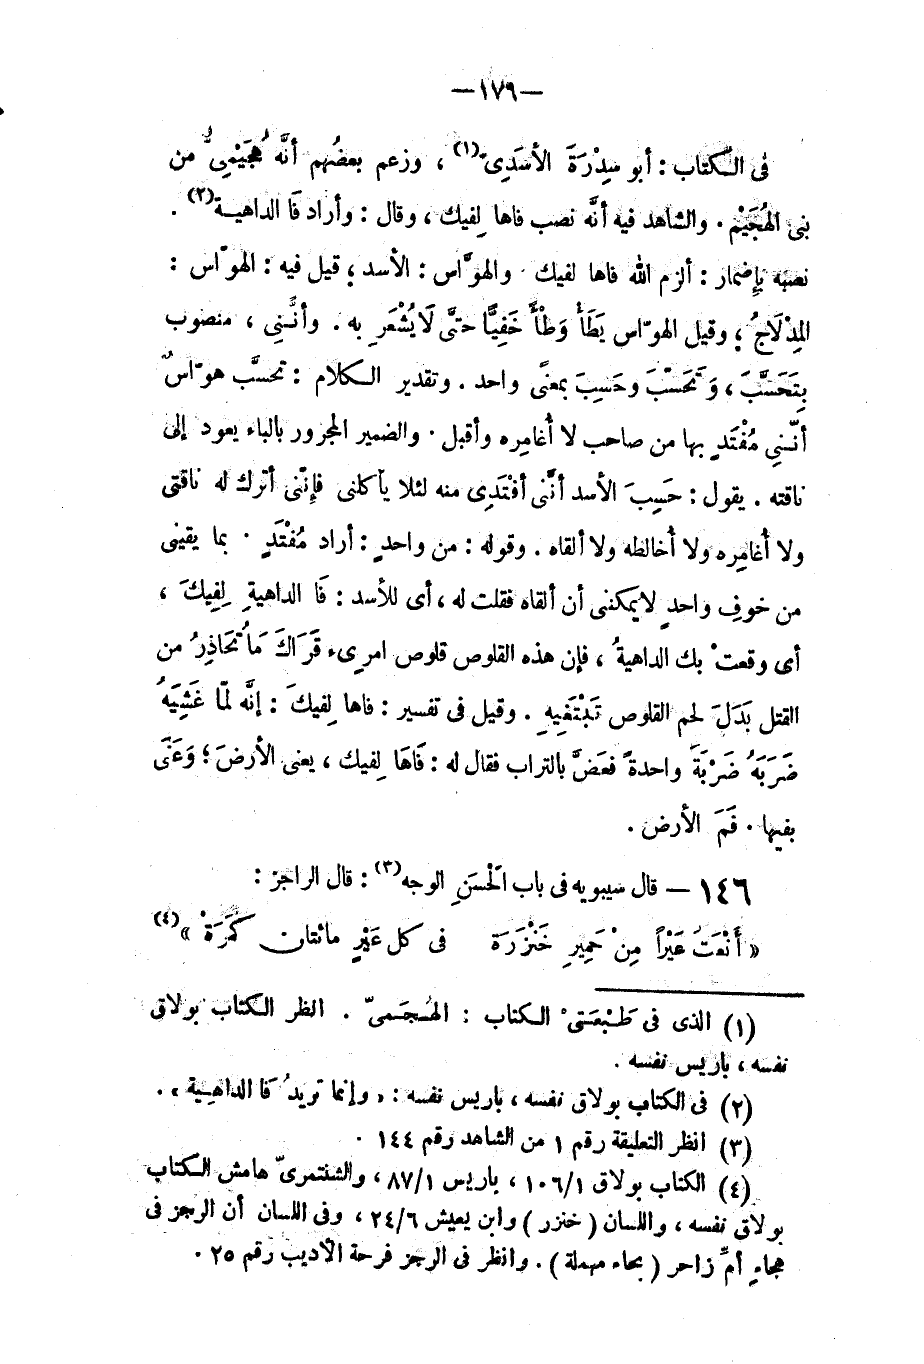 —١٧٩—
فى الكتاب : أبو سِدْرَةَ الأسَدِىّ(١) ، وزعم بعضُهم أنَّه هُجَيْمِىٌّ من
بنى الهُجَيْم . والشاهد فيه أنَّه نصب فاها لِفيك ، وقال : وأراد فَا الداهيـة(٢) .
نصبَه بإضمار : ألزم الله فاها لفيك . والهوَّاس : الأسد ؛ قيل فيه : الهوّاس :
المِدْلَاجُ ؛ وقيل الهوّاس يَطَأُ وَطْأً خَفِيًّا حتَّى لَا يُشْعَر بِه . وأنَّـنِى ، منصوب
بِتَحَسَّبَ ، وَتَحَسَّبَ وحَسِبَ بمعنًى واحد . وتقدير الكلام : تحسَّب هوّاسٌ
أنّـنِى مُفْتَدٍ بها من صاحب لا أُغامِره وأقبل . والضمير المجرور بالباء يعود إلى
ناقته . يقول : حَسِبَ الأسد أنّنى أفْتَدِى منه لئلا يأكلنى فإنّنى أترك له ناقتى
ولا أُغامِره ولا أُخالطه ولا ألقاه . وقوله : من واحدٍ : أراد مُفْتَدٍ . بما يقينى
من خوفِ واحدٍ لايمكننى أن ألقاه فقلت له ، أى للأسد : فَا الداهيةِ لِفِيكَ ،
أى وقعتْ بك الداهيةُ ، فإن هذه القلوص قلوص امرىء قَرَاكَ مَا تُحَاذِرُ من
القتل بَدَلَ لحم القلوص تَبْتَغِيهِ . وقيل فى تفسير : فاها لِفيكَ : إنَّه لمّا غَشِيَهُ
ضَرَبَهُ ضَرْبَةً واحدةً فعَضَّ بالتراب فقال له : فَاهَا لِفيك ، يعنى الأرضَ ؛ وَعَنَى
بفيها . فَمَ الأرض .
١٤٦ — قال سيبويه فى باب الْحَسَنِ الوجه(٣) : قال الراجز :
« أَنْعَتُ عَيْرًا مِنْ حَمِيرِ خَنْزَرَة فى كل عَيْرٍ مائتان كَمَرَةْ »(٤)
(١) الذى فى طَـبْعَتىْ الـكتاب : الهُـجَـمىّ . انظر الكتاب بولاق
نفسه ، باريس نفسه .
(٢) فى الكتاب بولاق نفسه ، باريس نفسه : « وإنما تريدُ فا الداهيـة » .
(٣) انظر التعليقة رقم ١ من الشاهد رقم ١٤٤ .
(٤) الكتاب بولاق ١٠٦/١ ، باريس ٨٧/١ ، والشنتمرىّ هامش الكتاب
بولاق نفسه ، واللسان ( خنزر ) وابن يعيش ٢٤/٦ ، وفى اللسان أن الرجز فى
هجاءِ أمِّ زاحر ( بحاء مهملة ) . وانظر فى الرجز فرحة الأديب رقم ٢٥ .